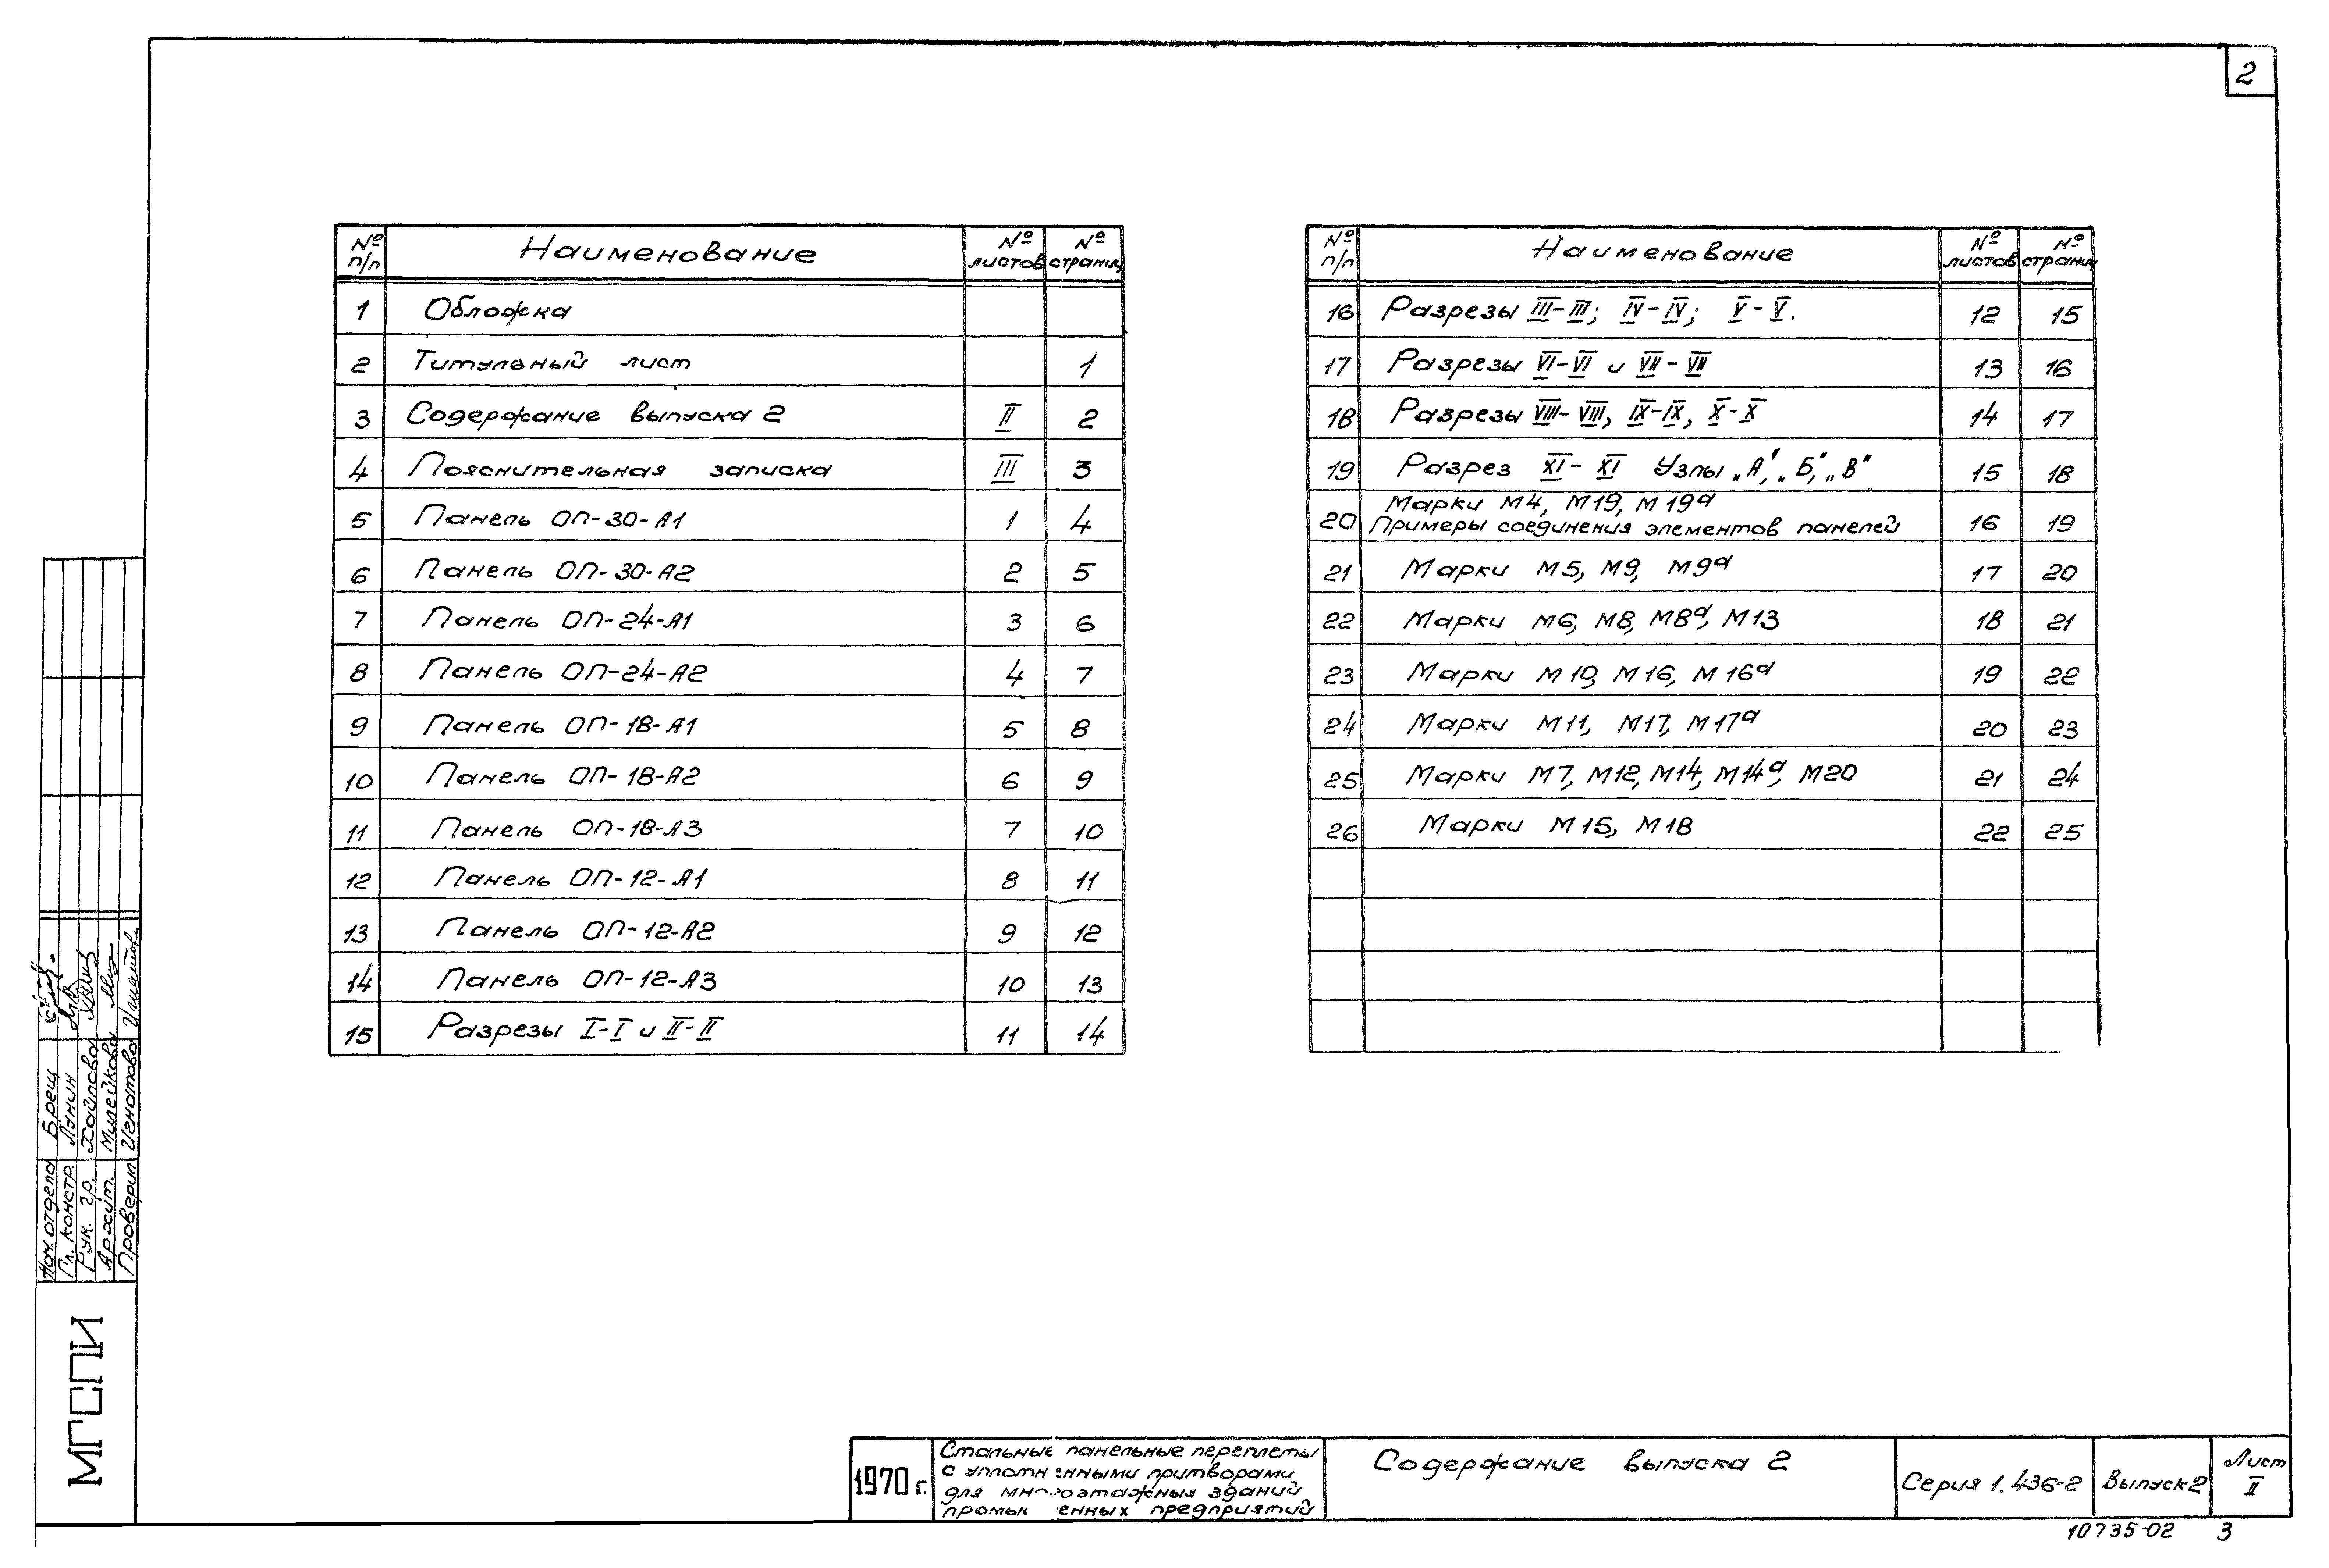 2
№ п/п Наименование № листов № страниц
1 Обложка
2 Титульный лист 1
3 Содержание выпуска 2 II 2
4 Пояснительная записка III 3
5 Панель ОП-30-А1 1 4
6 Панель ОП-30-А2 2 5
7 Панель ОП-24-А1 3 6
8 Панель ОП-24-А2 4 7
9 Панель ОП-18-А1 5 8
10 Панель ОП-18-А2 6 9
11 Панель ОП-18-А3 7 10
12 Панель ОП-12-А1 8 11
13 Панель ОП-12-А2 9 12
14 Панель ОП-12-А3 10 13
15 Разрезы I-I и II-II 11 14
№ п/п Наименование № листов № страниц
16 Разрезы III-III; IV-IV; V-V. 12 15
17 Разрезы VI-VI и VII-VII 13 16
18 Разрезы VIII-VIII, IX-IX, X-X 14 17
19 Разрез XI-XI Узлы „А", „Б", „В" 15 18
20 Марки М4, М19, М19а
Примеры соединения элементов панелей 16 19
21 Марки М5, М9, М9а 17 20
22 Марки М6, М8, М8а, М13 18 21
23 Марки М10, М16, М16а 19 22
24 Марки М11, М17, М17а 20 23
25 Марки М7, М12, М14, М14а, М20 21 24
26 Марки М15, М18 22 25
Нач. отдела Брещ
Гл. констр. Лунин
Рук. гр. Хайлова
Архит. Милейкова
Проверил Игнатова
МГСПИ
1970 г.
Стальные панельные переплеты
с уплотненными притворами
для многоэтажных зданий
промышленных предприятий
Содержание выпуска 2
Серия 1.436-2
Выпуск 2
Лист
II
10735-02 3